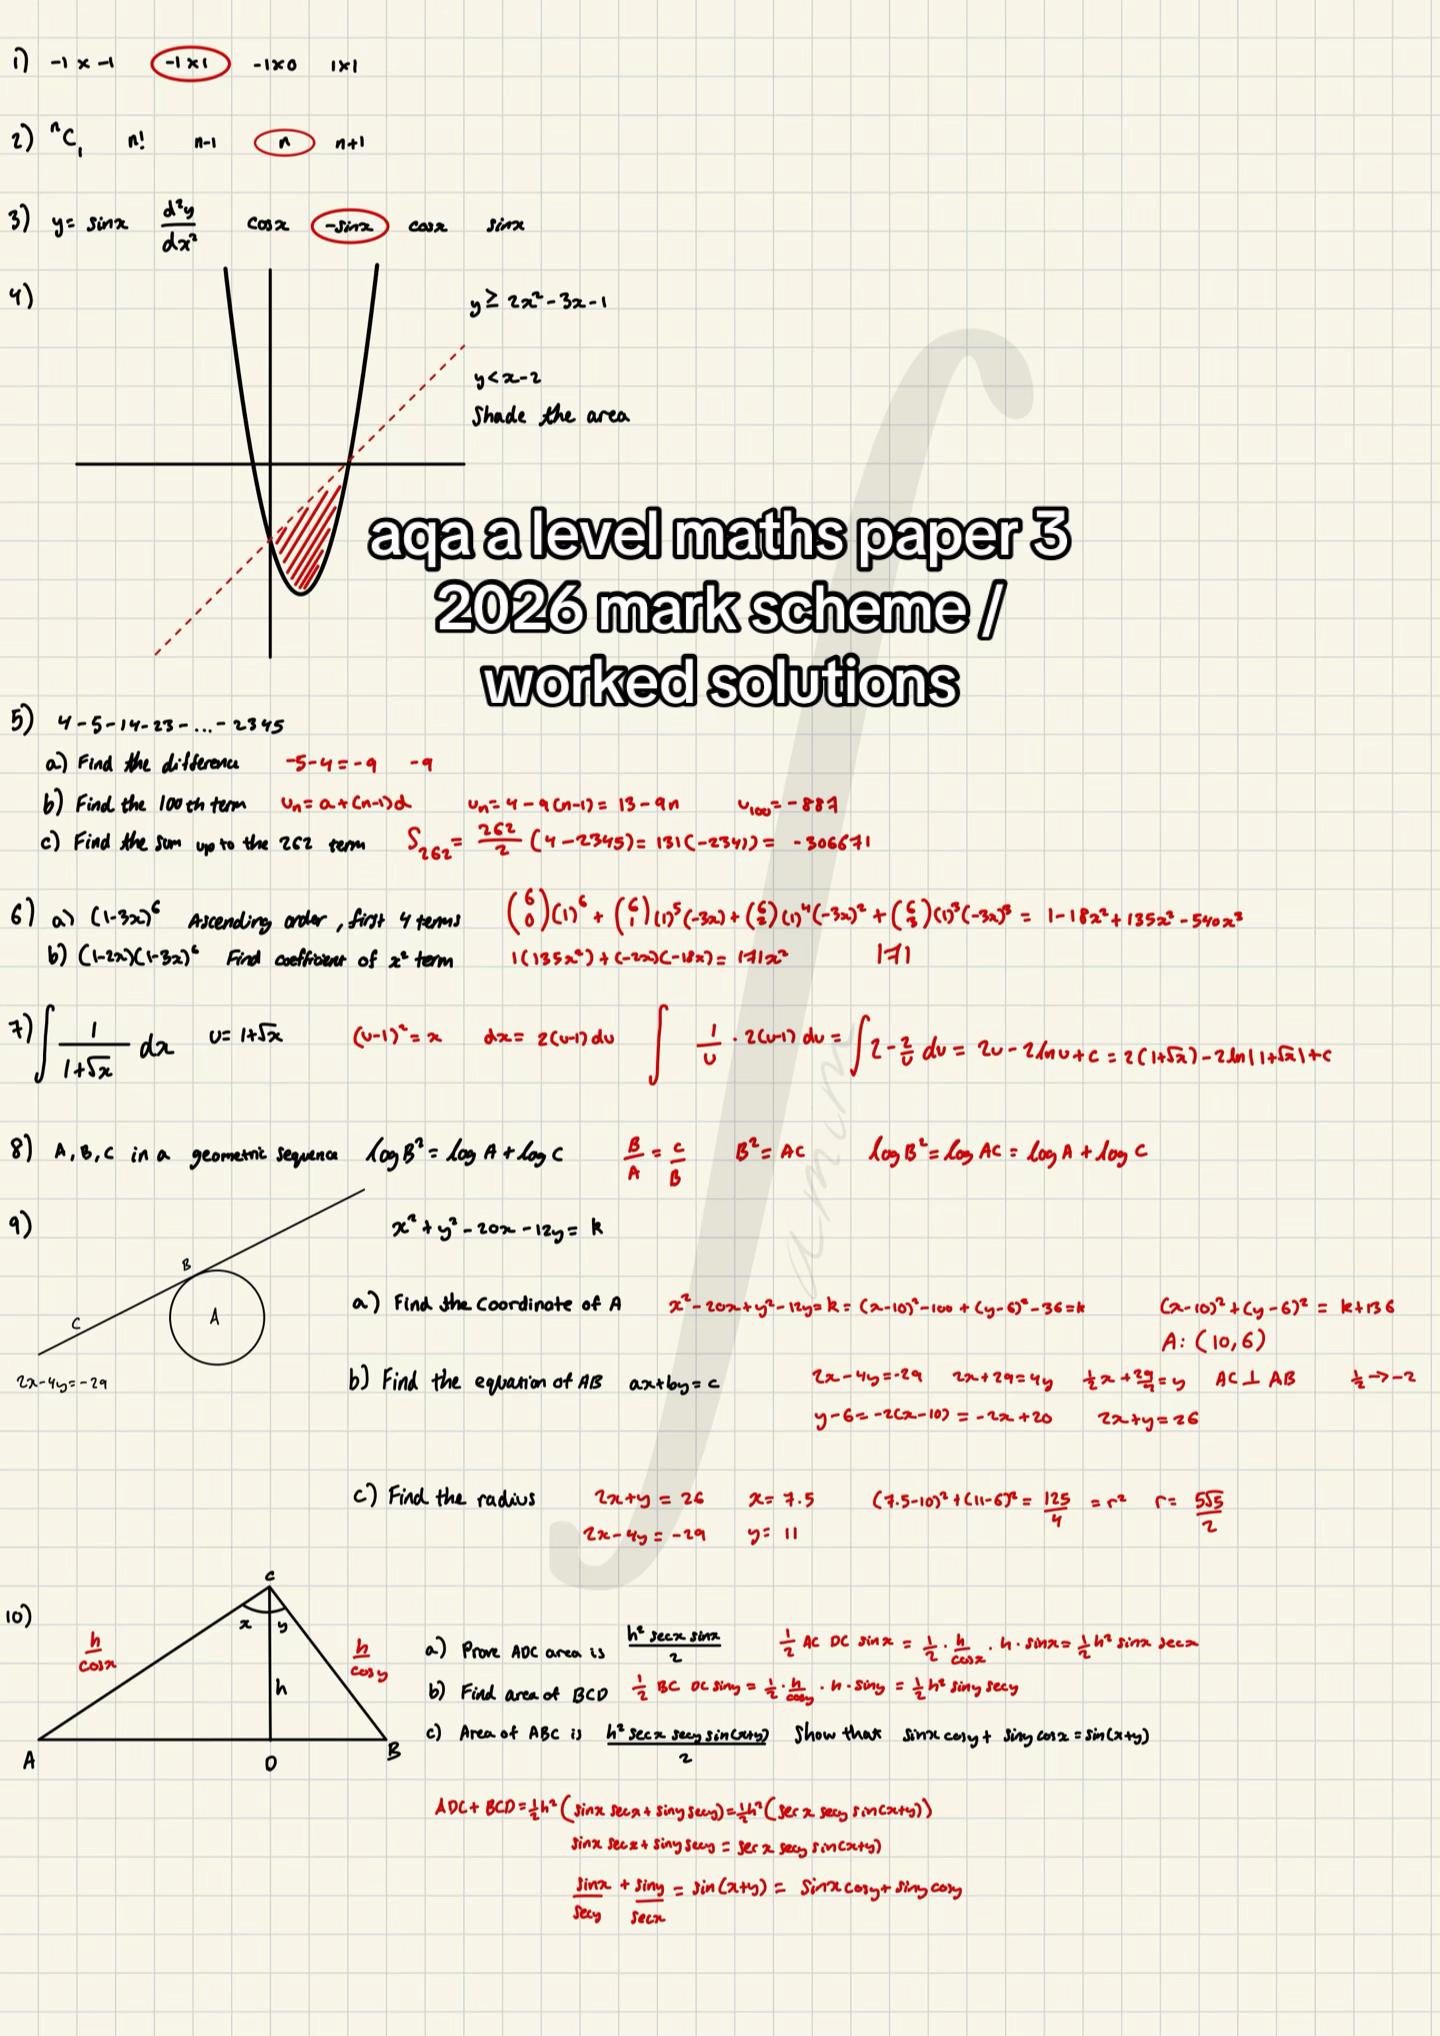 1) -1 x -1 -1x1 -1x0 1x1
2) ⁿC₁ n! n-1 n n+1
3) y= sinx d²y/dx² cosx -sinx cosx sinx
4)
y ≥ 2x²-3x-1
y<x-2
Shade the area
aqa a level maths paper 3
2026 mark scheme /
worked solutions
5) 4 - 5 - 14 - 23 - ... - 2345
a) Find the difference -5-4=-9 -9
b) Find the 100th term uₙ= a+(n-1)d uₙ= 4-9(n-1)= 13-9n u₁₀₀=-887
c) Find the sum up to the 262 term S₂₆₂= 262/2 (4-2345)= 131(-2341)= -306671
6) a) (1-3x)⁶ Ascending order, first 4 terms (6 0)(1)⁶ + (6 1)(1)⁵(-3x) + (6 2)(1)⁴(-3x)² + (6 3)(1)³(-3x)³ = 1-18x²+135x²-540x³
b) (1-2x)(1-3x)⁶ Find coefficient of x² term 1(135x²)+(-2x)(-18x)= 171x² 171
7) ∫ 1/(1+√x) dx u= 1+√x (u-1)²= x dx= 2(u-1)du ∫ 1/u · 2(u-1) du = ∫2-2/u du = 2u-2lnu+c = 2(1+√x)-2ln|1+√x|+c
8) A,B,C in a geometric sequence logB²= log A + log C B/A = C/B B²= AC logB²= log AC = log A + log C
9)
B
C
A
2x-4y=-29
x²+y²-20x-12y= k
a) Find the coordinate of A x²-20x+y²-12y=k = (x-10)²-100+(y-6)²-36=k (x-10)²+(y-6)² = k+136
A: (10,6)
b) Find the equation of AB ax+by=c 2x-4y=-29 2x+29=4y ½x+29/4=y AC ⊥ AB ½→-2
y-6=-2(x-10) = -2x+20 2x+y=26
c) Find the radius 2x+y=26 x= 7.5 (7.5-10)²+(11-6)²= 125/4 = r² r= 5√5/2
2x-4y=-29 y= 11
10)
C
x y
h/cosx
h/cosy
h
A
D
B
a) Prove ADC area is h² secx sinx/2 ½ AC DC sinx = ½ · h/cosx · h · sinx= ½h² sinx secx
b) Find area of BCD ½ BC DC siny = ½ · h/cosy · h · siny = ½h² siny secy
c) Area of ABC is h² secx secy sin(x+y)/2 Show that sinx cosy + siny cosx = sin(x+y)
ADC + BCD = ½h²(sinx secx + siny secy)=½h²(secx secy sin(x+y))
sinx secx + siny secy = secx secy sin(x+y)
sinx/secy + siny/secx = sin(x+y) = sinx cosy + siny cosy
amum